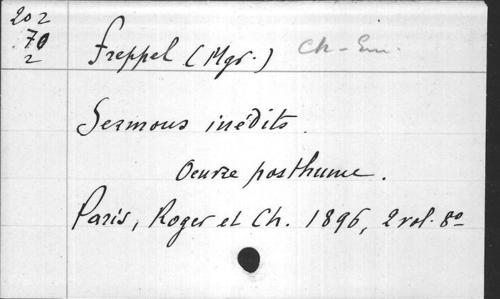 202
70
2
Freppel (Mgr.) Ch-Em.
Sermons inédits.
Oeuvre posthume.
Paris, Roger et Ch. 1896, 2 vol. 8º